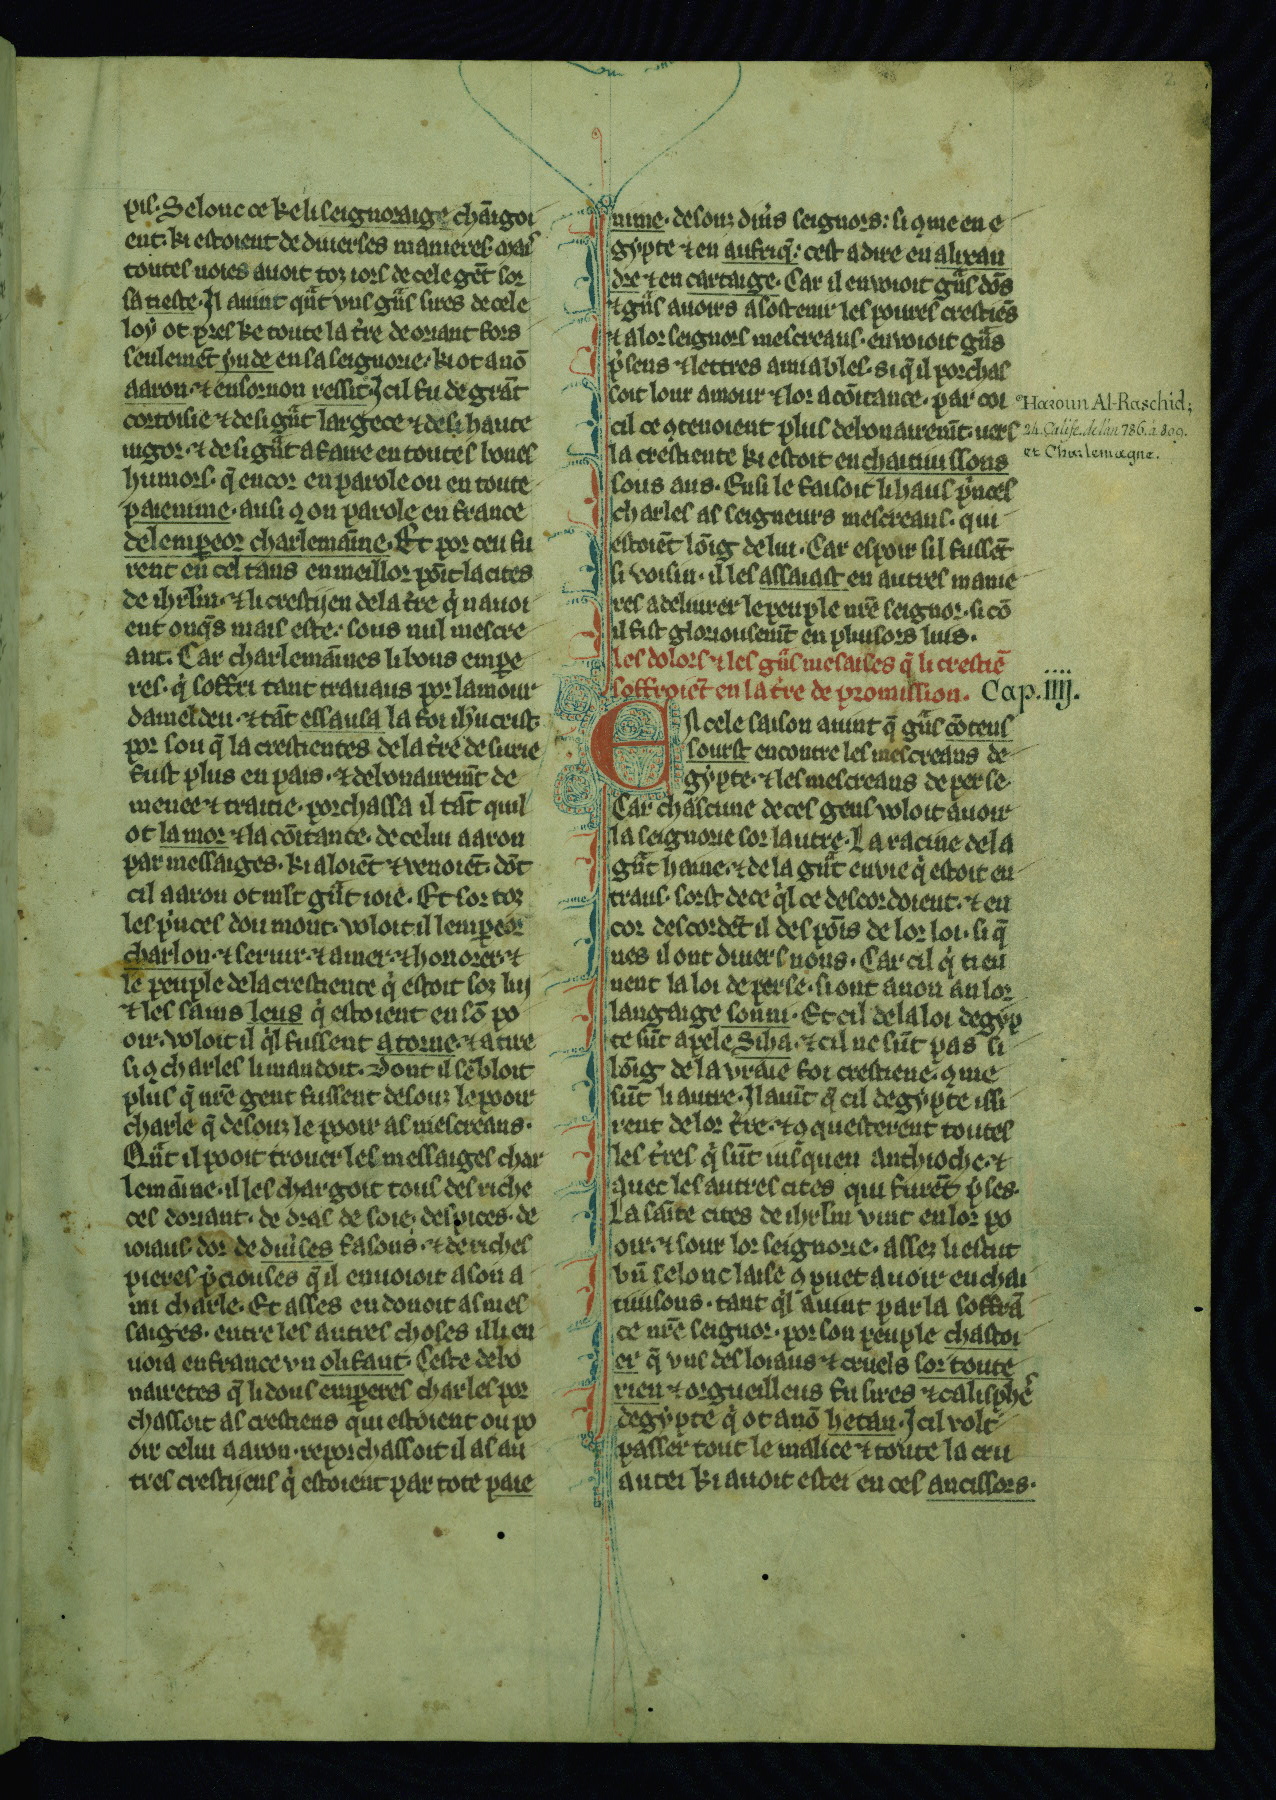 pis. Selonc ce ke li seignoraige chãigoi
ent. ki estoient de diuerses manieres. mais
toutes uoies auoit toz iors de cele gẽt sor
sa tieste. Il auint qãt vns gñs sires de cele
loy ot pres ke toute la t're de oriant fors
seulemẽt ynde en sa seignorie. ki ot anõ
aaron. ⁊ en sornon ressit. Icil fu de grãt
cortoisie ⁊ de si gãt largece ⁊ de si haute
uigor. ⁊ de si gãt afaire en toutes bones
humors. q̃ encor en parole ou en toute
paienime. ausi ꝯ on parole en france
de lempeor charlemaĩne. Et por ceu fu
rent en cel tans en meillor põit la cites
de ihrlm̃. ⁊ li crestijen de la t're q' n auoi
ent onq̃s mais este. sous nul mescre
ant. Car charlemaĩnes li bous empe
res. q' soffri tant trauaus por lamour
dameldeu. ⁊ tãt essausa la foi ihũcrist.
por sou q̃ la crestientes de la t're de surie
fust plus en pais. ⁊ debonairemt̃ de
menee ⁊ traitie. porchassa il tãt quil
ot lamor ⁊ la cõitance. de celui aaron
par messaiges. ki aloiẽt ⁊ venoiẽt. dõt
cil aaron ot mlt gãt ioie. Et sor toz
les p'nces dou mont. voloit il lempeor
charlon. ⁊ seruir. ⁊ amer. ⁊ honorer. ⁊
le peuple de la crestiente q' estoit soz luj
⁊ les sains leus q' estoient en sõ po
oir. voloit il q'l fussent atorne. ⁊ atire
si ꝯ charles li mandoit. Dont il sẽbloit
plus q̃ nr̃e gent fussent desouz le pooir
charle q̃ desouz le pooir as mescreans.
Qãt il pooit trouer les messaiges char
lemaĩne. il les chargoit tous des riche
ces doriant. de dras de soie. despices. de
ioiaus. dor de diu'ses fasons. ⁊ de riches
pieres p'ciouses q̃ il enuoioit a son a
mi charle. Et asses en donoit as mes
saiges. entre les autres choses illi en
uoia en france vn olifaut. Ceste debo
nairetes q̃ li dous emperes charles por
chassoit as crestiens qui estoient ou po
oir celui aaron. reporchassoit il as au
tres crestijens q' estoient par tote paie
nime. desouz diũs seignors: si ꝯme en e
gypte ⁊ en aufriq̃: cest a dire en alixan
dre ⁊ en cartaige. Car il enuoioit gñs dõs
⁊ gñs auoirs a sostenir les poures crestiẽs
⁊ a lor seignors mescreans. enuoioit gñs
p'sens ⁊ lettres amiables. si q̃ il porchas
soit lour amour ⁊ lor acõitance. par coi
cil ce ꝯtenoient plus debonairemt̃. uers
la crestiente ki estoit en chaitiuissons
sous aus. Ensi le faisoit li haus p'nces
charles as seigneurs mescreans. qui
estoiẽt lõig de lui. Car espoir sil fussẽt
si voisin. il les assaiast en autres manie
res a deliurer le peuple nr̃e seignor. si cõ
il fist gloriousemt̃ en plusors luis.
Les dolors ⁊ les gñs mesaises q̃ li crestiẽ
soffroiẽt en la t're de promission. Cap. IIIJ.
En cele saison auint q̃ gñs cõtens
sourst encontre les mescreans de
gypte. ⁊ les mescreans de perse.
Car chascune de ces gens voloit auoir
la seignorie sor lautre. La racine de la
gãt haine. ⁊ de la gãt enuie q' estoit en
traus. sorst de ce q'l ce descordoient. ⁊ en
cor descordẽt il des põis de lor loi. si q̃
nes il ont diuers nons. Car cil q' tien
nent la loi de perse. si ont anon an lor
langaige sonni. Et cil de la loi degyp
te sũt apele Siha. ⁊ cil ne sũt pas si
lõig de la vraie foi crestiene. ꝯme
sũt li autre. Il auĩt q̃ cil degypte issi
rent de lor t're. ⁊ ꝯquesterent toutes
les t'res q' sũt iusquen anthioche. ⁊
auec les autres cites qui furẽt p'ses.
La saĩte cites de ihrlm̃ vint en lor po
oir. ⁊ sour lor seignorie. assez li estut
bñ selonc laise ꝯ puet auoir en chai
tiuisons. tant q'l auint par la soffrã
ce nr̃e seignor. por son peuple chastoi
er q̃ vns desloiaus ⁊ cruels sor toute
rien ⁊ orgueilleus fu sires ⁊ calisphe
degypte q' ot anõ hetan. Icil volt
passer tout le malice ⁊ toute la cru
autei ki auoit estei en ces ancissors.
Haroun Al-Raschid;
24. Calife. de l'an 786. à 809.
et Charlemagne.
2